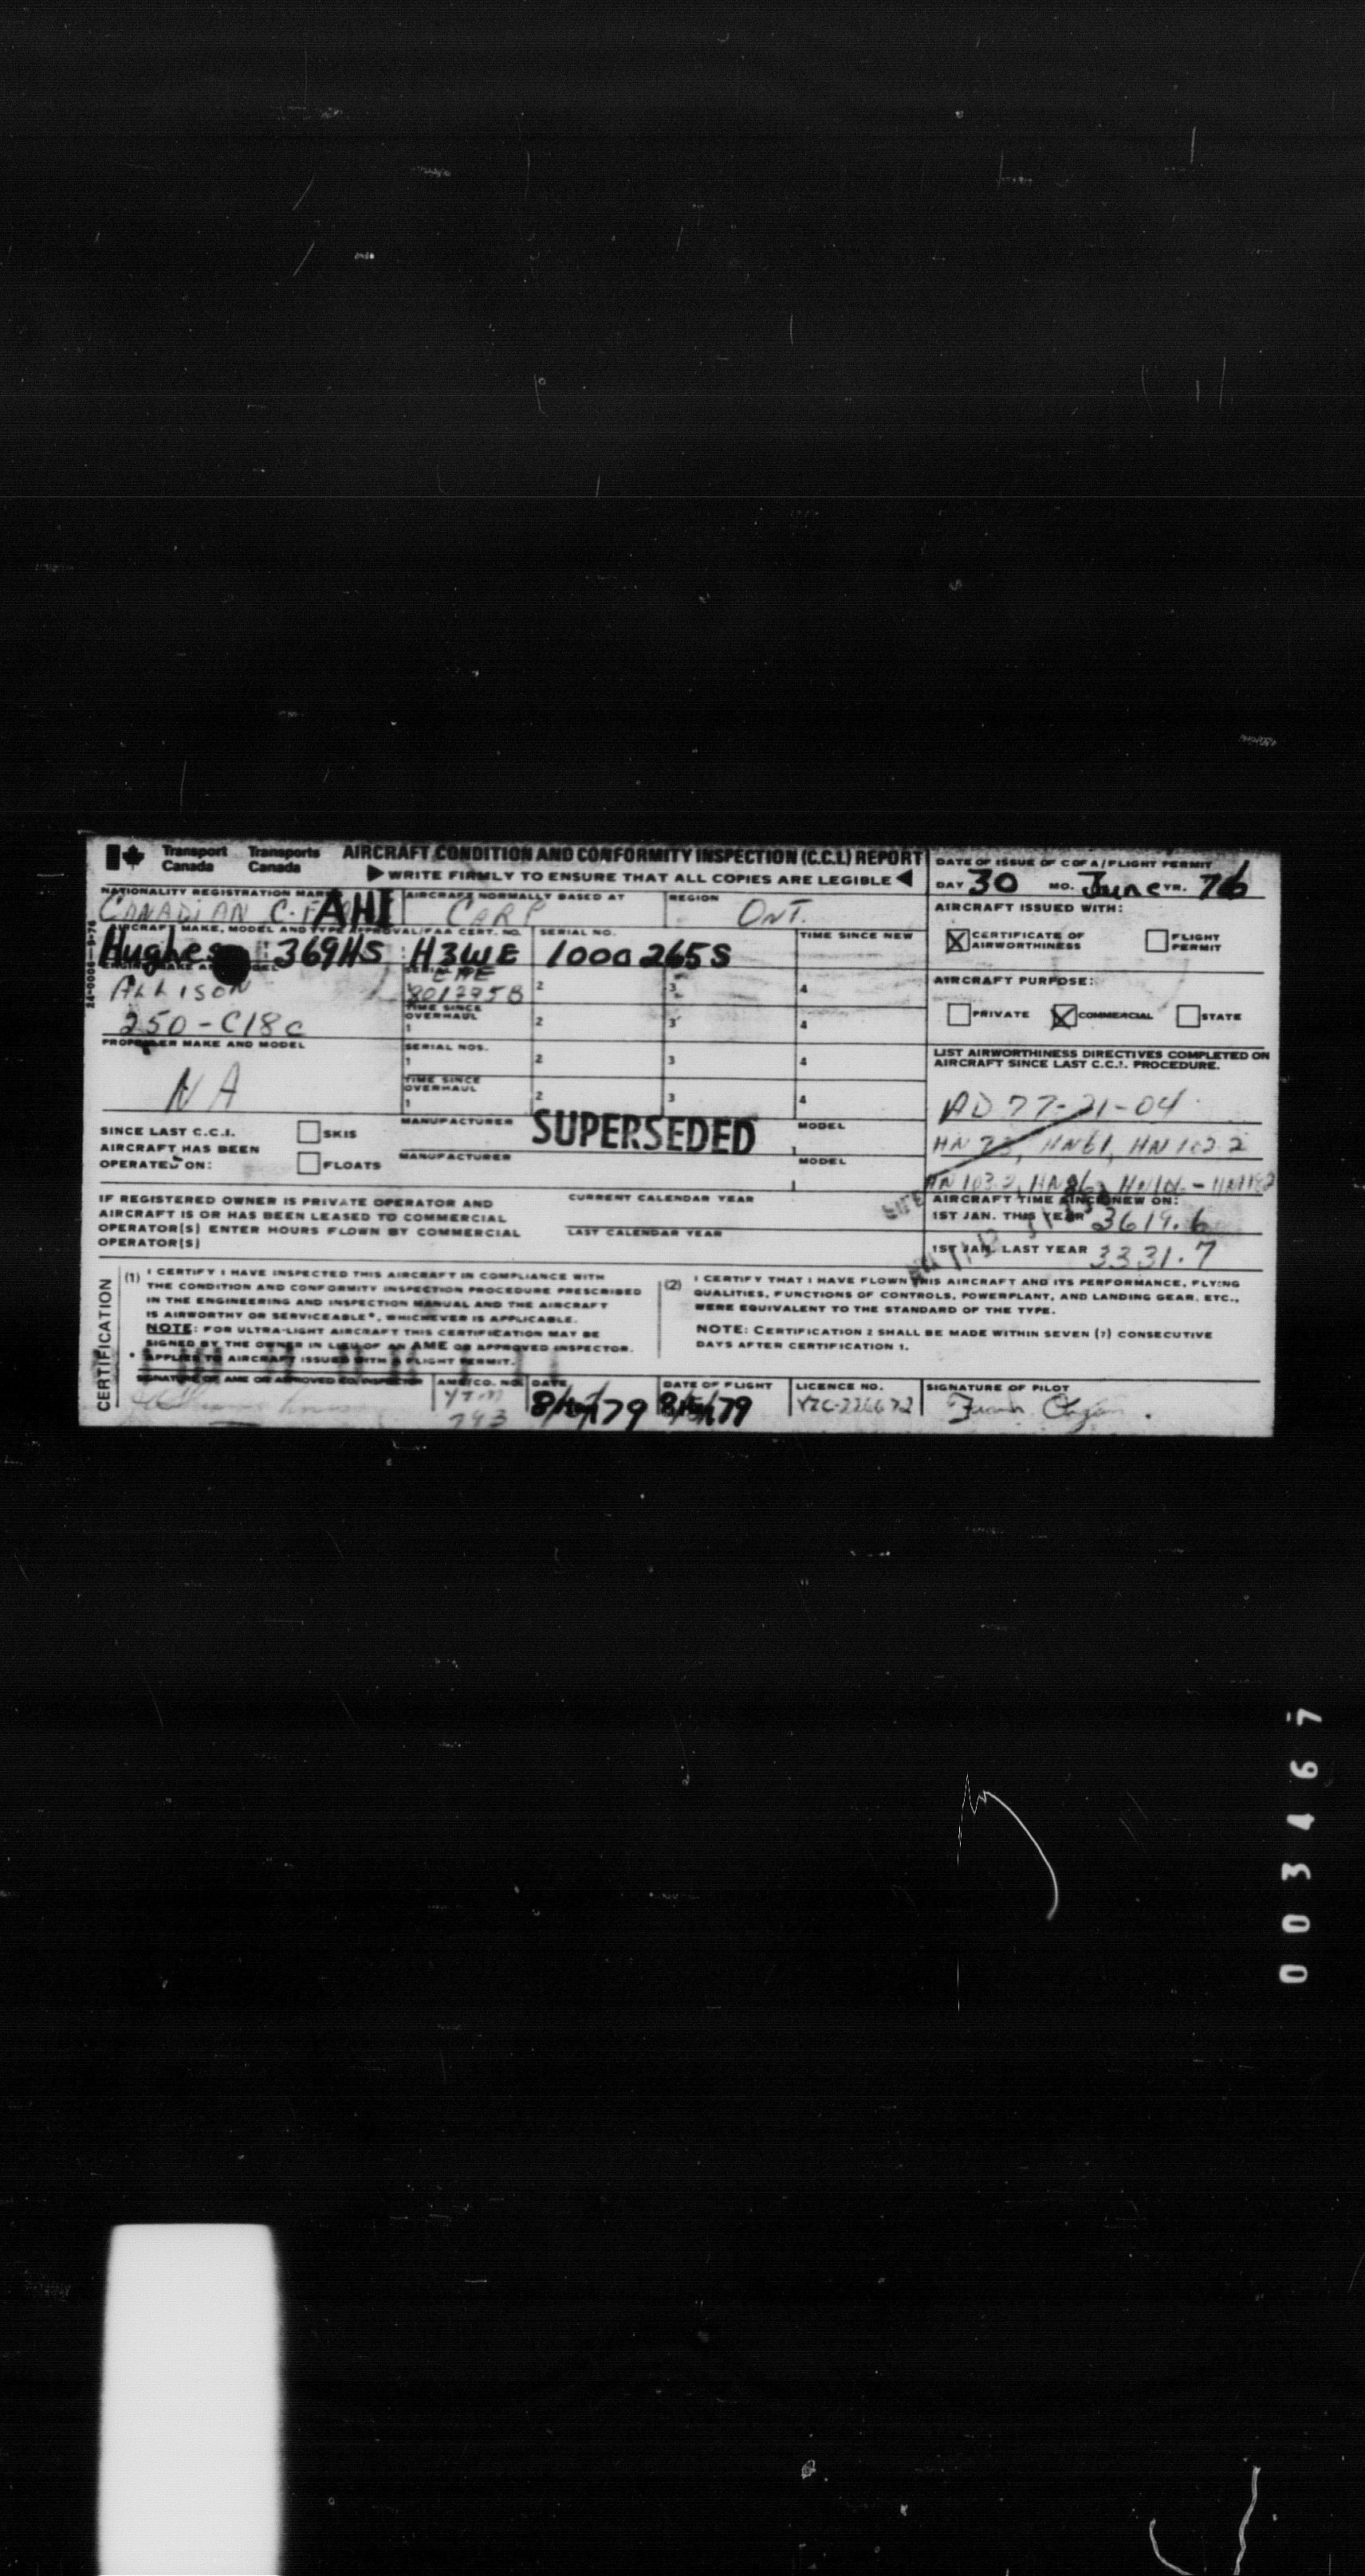 Transport Canada Transports Canada
AIRCRAFT CONDITION AND CONFORMITY INSPECTION (C.C.I.) REPORT
WRITE FIRMLY TO ENSURE THAT ALL COPIES ARE LEGIBLE
DATE OF ISSUE OF C OF A / FLIGHT PERMIT
DAY 30 MO. June YR. 76
NATIONALITY REGISTRATION MARK
CANADIAN C-F AHI
AIRCRAFT NORMALLY BASED AT
CARP
REGION
ONT.
AIRCRAFT ISSUED WITH:
CERTIFICATE OF AIRWORTHINESS
FLIGHT PERMIT
AIRCRAFT MAKE, MODEL AND TYPE APPROVAL/FAA CERT. NO.
Hughes 369HS H3WE
SERIAL NO.
1000265S
TIME SINCE NEW
ALLISON
250-C18C
CAE
801795B
2 3 4
TIME SINCE OVERHAUL
1 2 3 4
AIRCRAFT PURPOSE:
PRIVATE COMMERCIAL STATE
PROPELLER MAKE AND MODEL
NA
SERIAL NOS.
1 2 3 4
TIME SINCE OVERHAUL
1 2 3 4
LIST AIRWORTHINESS DIRECTIVES COMPLETED ON
AIRCRAFT SINCE LAST C.C.I. PROCEDURE.
AD 77-21-04
HN 73, HN61, HN 102.2
HN 103.2, HN86,
SINCE LAST C.C.I.
AIRCRAFT HAS BEEN
OPERATED ON:
SKIS
FLOATS
MANUFACTURER
MODEL
MANUFACTURER
MODEL
SUPERSEDED
IF REGISTERED OWNER IS PRIVATE OPERATOR AND
AIRCRAFT IS OR HAS BEEN LEASED TO COMMERCIAL
OPERATOR(S) ENTER HOURS FLOWN BY COMMERCIAL
OPERATOR(S)
CURRENT CALENDAR YEAR
LAST CALENDAR YEAR
AIRCRAFT TIME SINCE NEW ON:
1ST JAN. THIS YEAR 3619.6
1ST JAN. LAST YEAR 3331.7
CERTIFICATION
(1) I CERTIFY I HAVE INSPECTED THIS AIRCRAFT IN COMPLIANCE WITH
THE CONDITION AND CONFORMITY INSPECTION PROCEDURE PRESCRIBED
IN THE ENGINEERING AND INSPECTION MANUAL AND THE AIRCRAFT
IS AIRWORTHY OR SERVICEABLE*, WHICHEVER IS APPLICABLE.
NOTE: FOR ULTRA-LIGHT AIRCRAFT THIS CERTIFICATION MAY BE
SIGNED BY THE OWNER IN LIEU OF AN AME OR APPROVED INSPECTOR.
* APPLIES TO AIRCRAFT ISSUED WITH A FLIGHT PERMIT.
(2) I CERTIFY THAT I HAVE FLOWN THIS AIRCRAFT AND ITS PERFORMANCE, FLYING
QUALITIES, FUNCTIONS OF CONTROLS, POWERPLANT, AND LANDING GEAR, ETC.,
WERE EQUIVALENT TO THE STANDARD OF THE TYPE.
NOTE: CERTIFICATION 2 SHALL BE MADE WITHIN SEVEN (7) CONSECUTIVE
DAYS AFTER CERTIFICATION 1.
SIGNATURE OF AME OR APPROVED CO. INSPECTOR
AME/CO. NO.
YTM
793
DATE
DATE OF FLIGHT
LICENCE NO.
SIGNATURE OF PILOT
003467